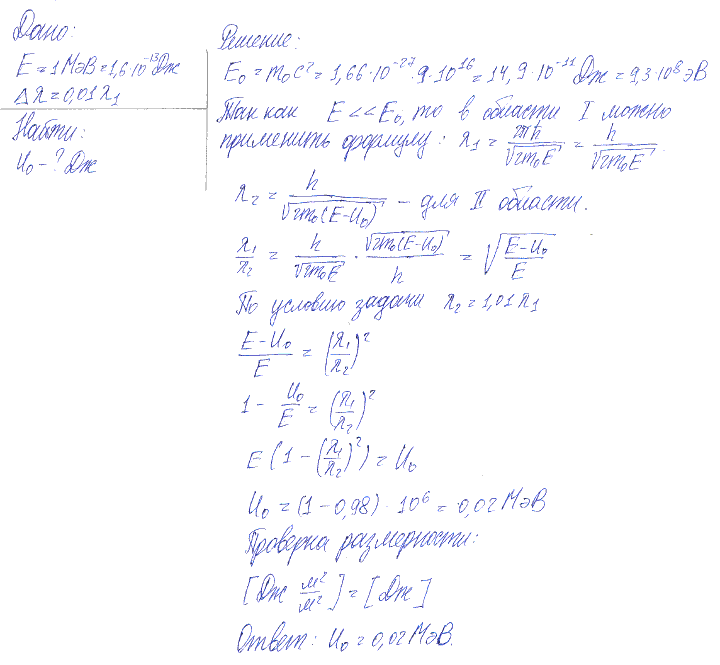 Дано:
E = 1 МэВ = 1,6·10⁻¹³ Дж
Δλ = 0,01 λ₁
Найти:
U₀ - ? Дж
Решение:
E₀ = m₀c² = 1,66·10⁻²⁷·9·10¹⁶ = 14,9·10⁻¹¹ Дж = 9,3·10⁸ эВ
Так как E << E₀, то в области I можно
применить формулу: λ₁ = 2πħ/√(2m₀E) = h/√(2m₀E)
λ₂ = h/√(2m₀(E-U₀)) - для II области.
λ₁/λ₂ = h/√(2m₀E) · √(2m₀(E-U₀))/h = √((E-U₀)/E)
По условию задачи λ₂ = 1,01 λ₁
(E-U₀)/E = (λ₁/λ₂)²
1 - U₀/E = (λ₁/λ₂)²
E(1-(λ₁/λ₂)²) = U₀
U₀ = (1-0,98)·10⁶ = 0,02 МэВ
Проверка размерности:
[Дж м²/м²] = [Дж]
Ответ: U₀ = 0,02 МэВ.